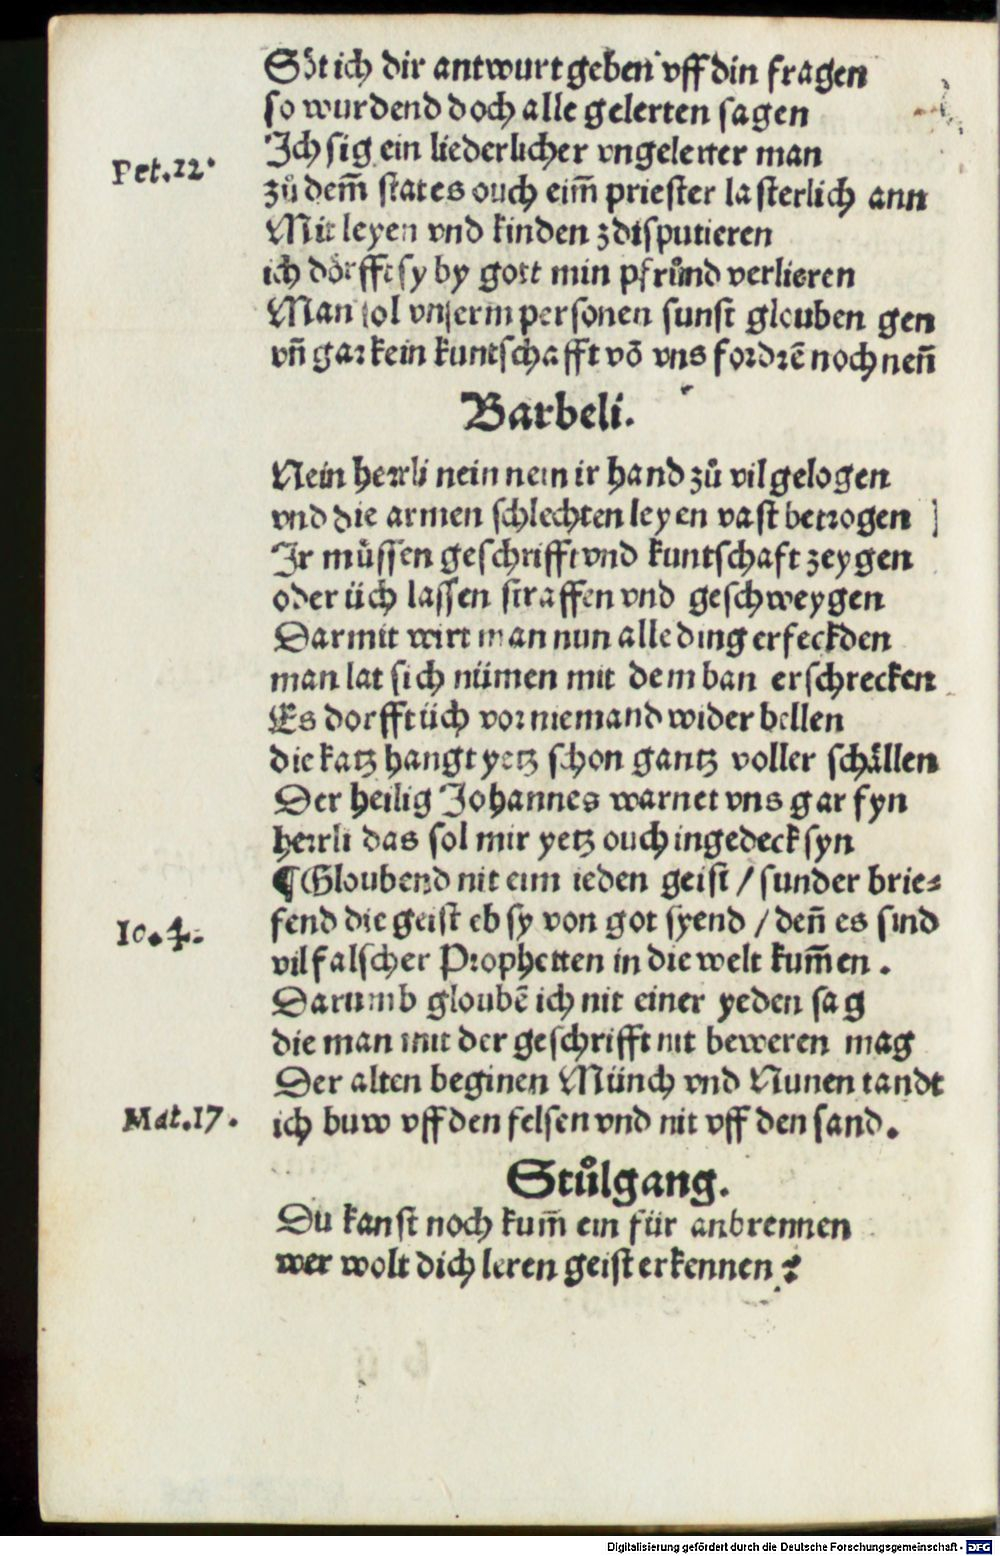 Söt ich dir antwurt geben vff din fragen
so wurdend doch alle gelerten sagen
Ich sig ein liederlicher vngelerter man
Pet.12.
zů dem̃ stat es ouch eim̃ priester lasterlich ann
Mit leyen vnd kinden zdisputieren
ich dörfft sy by gott min pfrůnd verlieren
Man sol vnserm personen sunst glouben gen
vñ gar kein kuntschafft võ vns fordrẽ noch neñ
Barbeli.
Nein herrli nein nein ir hand zů vil gelogen
vnd die armen schlechten leyen vast betrogen
Ir můssen geschrifft vnd kuntschaft zeygen
oder üch lassen straffen vnd geschweygen
Darmit wirt man nun alle ding erfeckden
man lat sich nümen mit dem ban erschrecken
Es dorfft üch vor niemand wider bellen
die katz hangt yetz schon gantz voller schällen
Der heilig Johannes warnet vns gar fyn
herrli das sol mir yetz ouch ingedeck syn
¶Gloubend nit eim ieden geist / sunder brie⸗
fend die geist eb sy von got syend / deñ es sind
Io.4.
vil falscher Prophetten in die welt kum̃en.
Darumb gloubẽ ich nit einer yeden sag
die man mit der geschrifft nit beweren mag
Der alten beginen Münch vnd Nunen tandt
Mat.17.
ich buw vff den felsen vnd nit vff den sand.
Stůlgang.
Du kanst noch kum̃ ein für anbrennen
wer wolt dich leren geist erkennen?
Digitalisierung gefördert durch die Deutsche Forschungsgemeinschaft - DFG